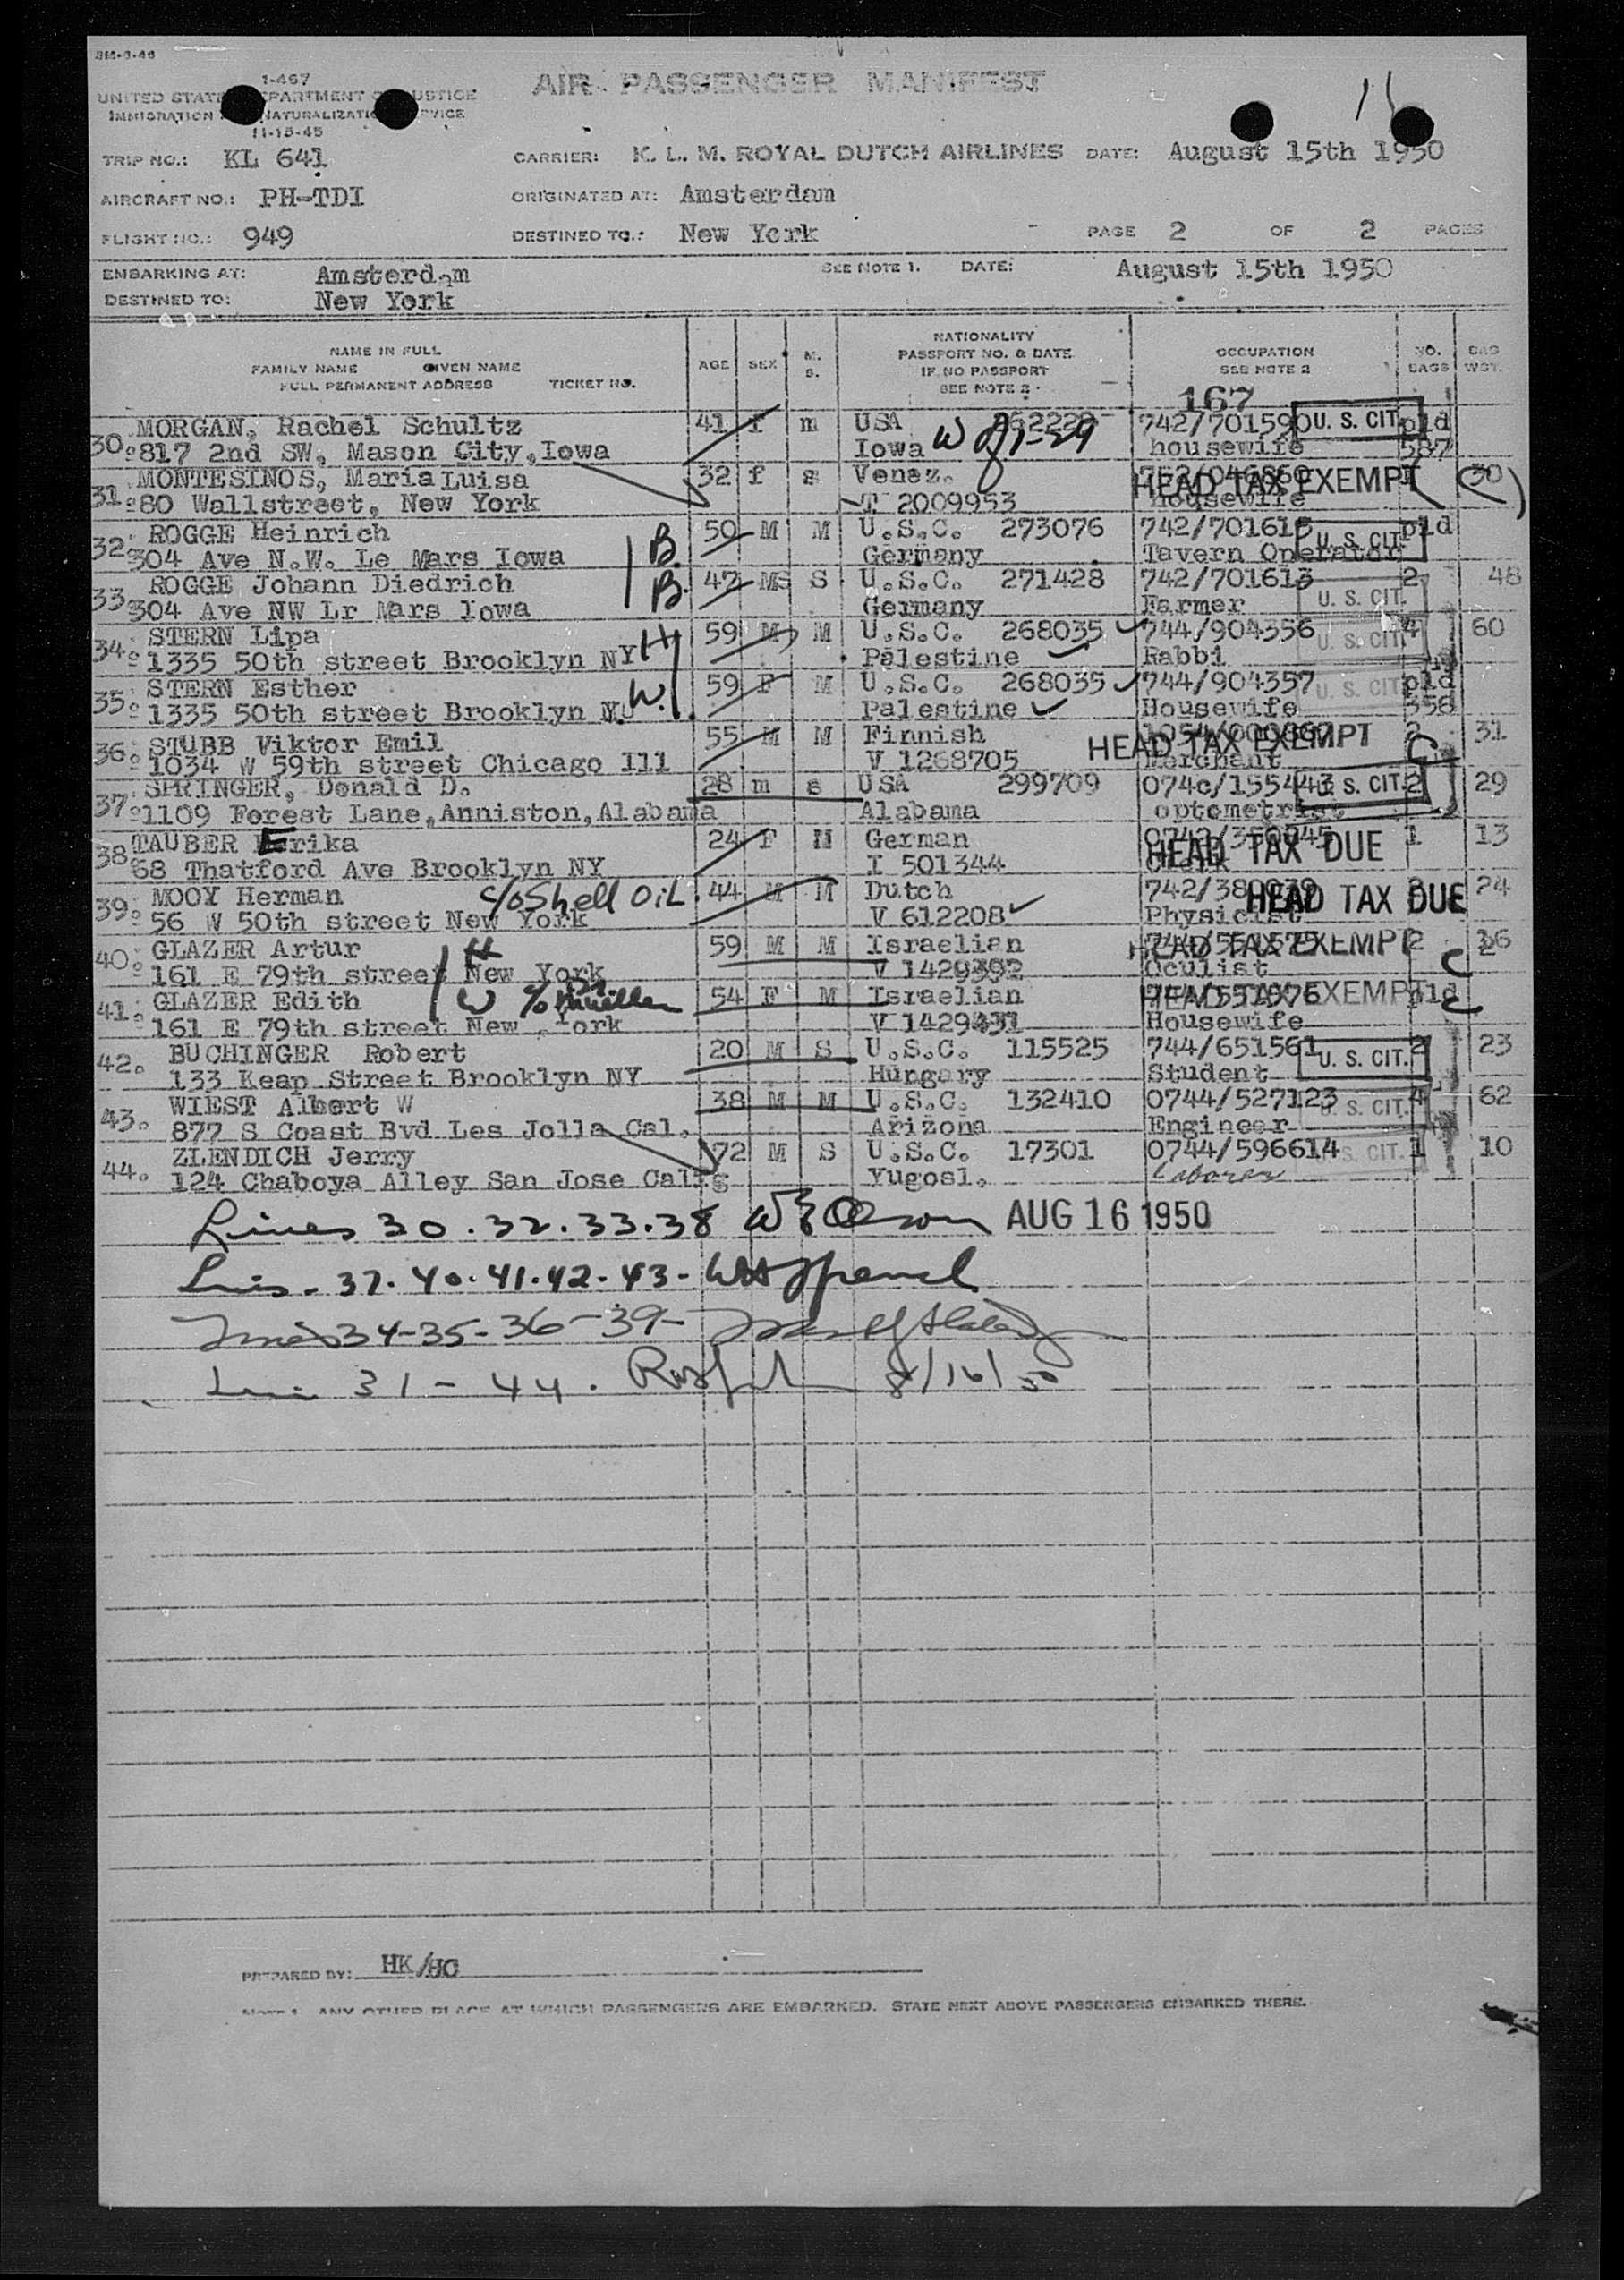 3M-6-46
I-467
AIR PASSENGER MANIFEST
11
UNITED STATES DEPARTMENT OF JUSTICE
IMMIGRATION NATURALIZATION SERVICE
11-15-45
TRIP NO.: KL 641 CARRIER: K. L. M. ROYAL DUTCH AIRLINES DATE: August 15th 1950
AIRCRAFT NO.: PH-TDI ORIGINATED AT: Amsterdam
FLIGHT NO.: 949 DESTINED TO.: New York PAGE 2 OF 2 PAGES
EMBARKING AT: Amsterdam SEE NOTE 1. DATE: August 15th 1950
DESTINED TO: New York
NAME IN FULL
FAMILY NAME GIVEN NAME
FULL PERMANENT ADDRESS TICKET NO. AGE SEX M. S. NATIONALITY PASSPORT NO. & DATE IF NO PASSPORT SEE NOTE 2 OCCUPATION SEE NOTE 2 NO. BAGS BAG WGT.
167
30. MORGAN, Rachel Schultz 41 f m USA 742/701590 U. S. CIT. pld
817 2nd SW, Mason City, Iowa Iowa housewife 587
31. MONTESINOS, Maria Luisa 32 f s Venez. HEAD TAX EXEMPT (30)
80 Wallstreet, New York T 2009953 housewife
32. ROGGE Heinrich B. 50 M M U.S.C. 273076 742/701615 U. S. CIT. pld
304 Ave N.W. Le Mars Iowa Germany Tavern Operator
33. ROGGE Johann Diedrich B. 47 MS S U.S.C. 271428 742/701613 2 48
304 Ave NW Lr Mars Iowa Germany Farmer U. S. CIT.
34. STERN Lipa H 59 M M U.S.C. 268035 744/904356 4 60
1335 50th street Brooklyn NY Palestine Rabbi U. S. CIT.
35. STERN Esther W. 59 F M U.S.C. 268035 744/904357 U. S. CIT. pld
1335 50th street Brooklyn Palestine Housewife 358
36. STUBB Viktor Emil 55 M M Finnish HEAD TAX EXEMPT 2 31
1034 W 59th street Chicago Ill V 1268705 Merchant C
37. SPRINGER, Donald D. 28 m s USA 299709 074c/155443 U. S. CIT. 2 29
1109 Forest Lane, Anniston, Alabama Alabama optometrist
38. TAUBER Erika 24 F M German HEAD TAX DUE 1 13
68 Thatford Ave Brooklyn NY I 501344
39. MOOY Herman c/o Shell Oil 44 M M Dutch HEAD TAX DUE 24
56 W 50th street New York V 612208 Physicist
40. GLAZER Artur H 59 M M Israelian HEAD TAX EXEMPT 2
161 E 79th street New York Oculist C
41. GLAZER Edith W 54 F M Israelian HEAD TAX EXEMPT pld C
161 E 79th street New York Housewife
42. BUCHINGER Robert 20 M S U.S.C. 115525 744/651561 U. S. CIT. 2 23
133 Keap Street Brooklyn NY Hungary Student
43. WIEST Albert W 38 M M U.S.C. 132410 0744/527123 U. S. CIT. 4 62
877 S Coast Bvd Les Jolla Cal. Arizona Engineer
44. ZLENDICH Jerry 72 M S U.S.C. 17301 0744/596614 U. S. CIT. 1 10
124 Chaboya Alley San Jose Yugosl. Laborer
Lines 30.32.33.38 AUG 16 1950
37.40.41.42.43-
34-35-36-39-
31-44. 8/16/50
PREPARED BY: HK/HC
NOTE 1. ANY OTHER PLACE AT WHICH PASSENGERS ARE EMBARKED. STATE NEXT ABOVE PASSENGERS EMBARKED THERE.